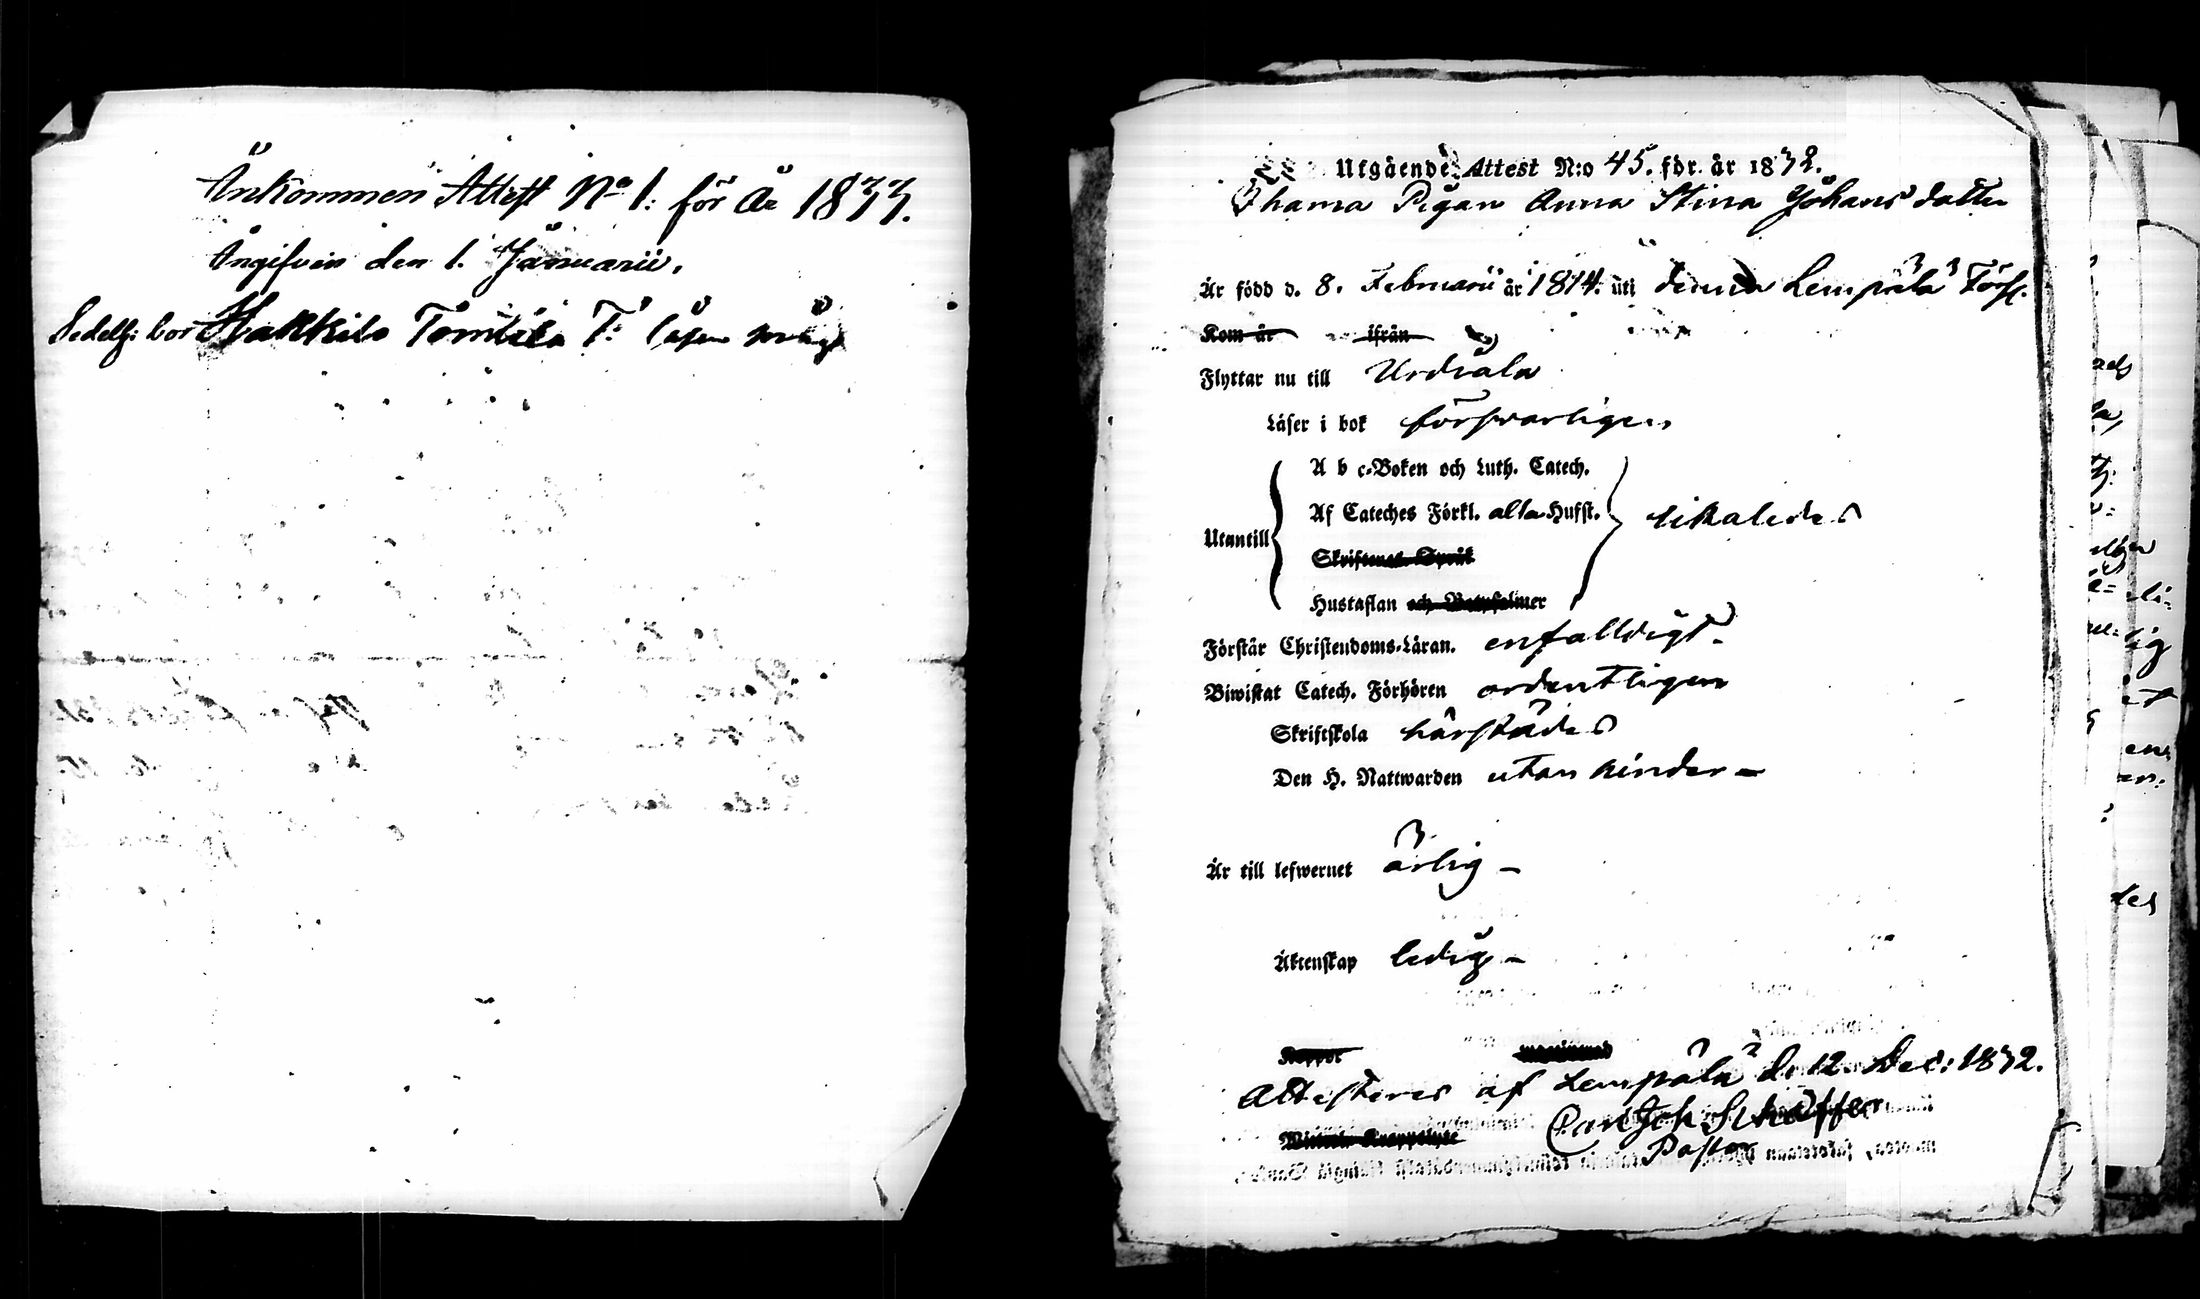 Ankommen Attest No 1. för År 1833.
Angifven den 1. Januarii.
Sedelh: bor Hakkila Tomula T:
Utgående Attest N:o 45. för år 1832.
Pigan Anna Stina Johansdotter
Är född d. 8. Februarii år 1814. uti denna Lempälä Förs.
Kom år ifrån
Flyttar nu till Urdiala
Läser i bok försvarligen
A b c-Boken och Luth. Catech.
Af Cateches Förkl. alla Hufst.
Utantill likaledes
Skriftenes Språk
Hustaflan och Botpsalmer
Förstår Christendoms-Läran. enfalldigt.
Biwistat Catech. Förhören ordentligen
Skriftskola härstädes
Den H. Nattwarden utan hinder –
Är till lefwernet ärlig –
Äktenskap ledig –
Koppor
Attesteres af Lempälä d. 12 Dec: 1832.
Carl Joh Schäffer
Pastor